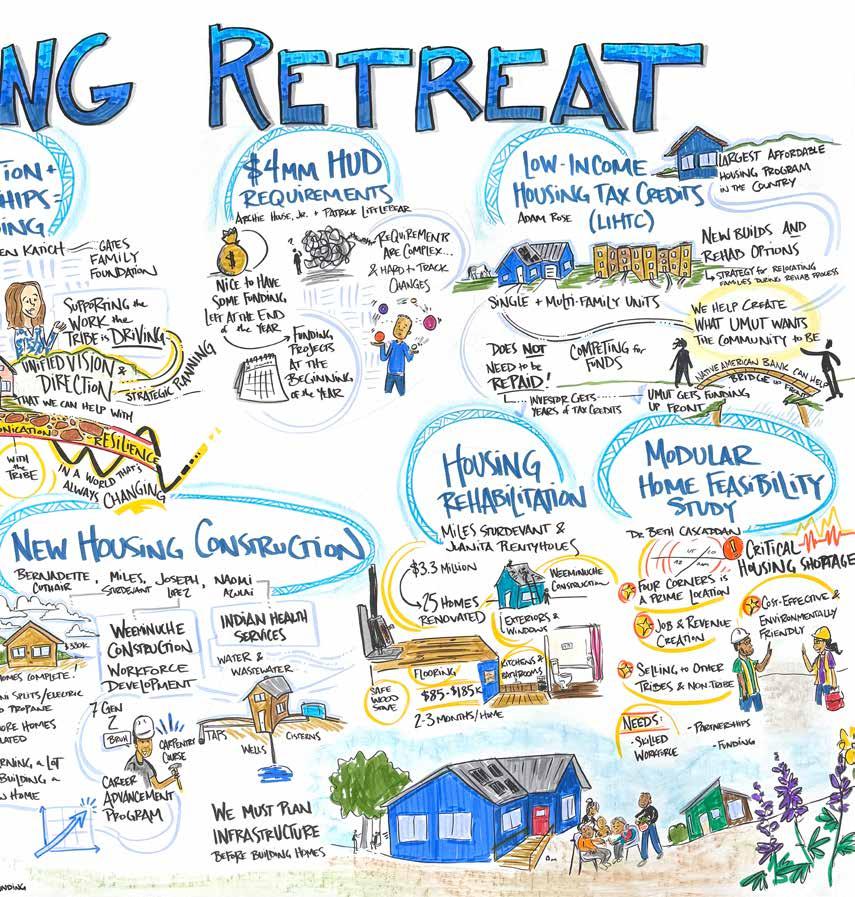 NG RETREAT
TION +
SHIPS =
ING
EN KATICH
GATES
FAMILY
FOUNDATION
SUPPORTING the
WORK the
TRIBE is DRIVING
UNIFIED VISION &
DIRECTION
THAT WE CAN HELP WITH
STRATEGIC PLANNING
UNICATION
RESILIENCE
WITH
the
TRIBE
IN A WORLD THAT'S
ALWAYS CHANGING
$4MM HUD
REQUIREMENTS
ARCHIE HOUSE, JR. + PATRICK LITTLEBEAR
NICE to HAVE
SOME FUNDING
LEFT AT THE END
of the YEAR
REQUIREMENTS
ARE COMPLEX...
& HARD to TRACK
CHANGES
FUNDING
PROJECTS
AT the
BEGINNING
of the YEAR
LOW-INCOME
HOUSING TAX CREDITS
(LIHTC)
ADAM ROSE
LARGEST AFFORDABLE
HOUSING PROGRAM
IN the COUNTRY
NEW BUILDS AND
REHAB OPTIONS
STRATEGY for RELOCATING
FAMILIES DURING REHAB PROCESS
SINGLE + MULTI-FAMILY UNITS
WE HELP CREATE
WHAT UMUT WANTS
THE COMMUNITY to BE
DOES NOT
NEED to be
REPAID!
COMPETING for
FUNDS
INVESTOR GETS
YEARS of TAX CREDITS
UMUT GETS FUNDING
UP FRONT
NATIVE AMERICAN BANK CAN HELP
BRIDGE UP FRONT
NEW HOUSING CONSTRUCTION
BERNADETTE
CUTHAIR,
MILES
STURDEVANT,
JOSEPH
LOPEZ,
NAOMI
AZULAI
$330K
HOMES COMPLETE!
NI SPLITS/ELECTRIC
O PROPANE
ORE HOMES
LATED
RNING A LOT
BUILDING A
W HOME
WEEMINUCHE
CONSTRUCTION
WORKFORCE
DEVELOPMENT
7 GEN
Z
BRUH
CARPENTRY
COURSE
CAREER
ADVANCEMENT
PROGRAM
INDIAN HEALTH
SERVICES
WATER &
WASTEWATER
TAPS
WELLS
CISTERNS
WE MUST PLAN
INFRASTRUCTURE
BEFORE BUILDING HOMES
HOUSING
REHABILITATION
MILES STURDEVANT &
JUANITA PLENTYHOLES
$3.3 MILLION
25 HOMES
RENOVATED
WEEMINUCHE
CONSTRUCTION
EXTERIORS &
WINDOWS
FLOORING
KITCHENS &
BATHROOMS
SAFE
WOOD
STOVE
$85-$185K
2-3 MONTHS/HOME
MODULAR
HOME FEASIBILITY
STUDY
UT
CO
AZ
NM
! CRITICAL
HOUSING SHORTAGE
FOUR CORNERS is
A PRIME LOCATION
JOB & REVENUE
CREATION
COST-EFFECTIVE &
ENVIRONMENTALLY
FRIENDLY
SELLING to OTHER
TRIBES & NON-TRIBE
NEEDS:
- SKILLED
WORKFORCE
- PARTNERSHIPS
- FUNDING
UNDING